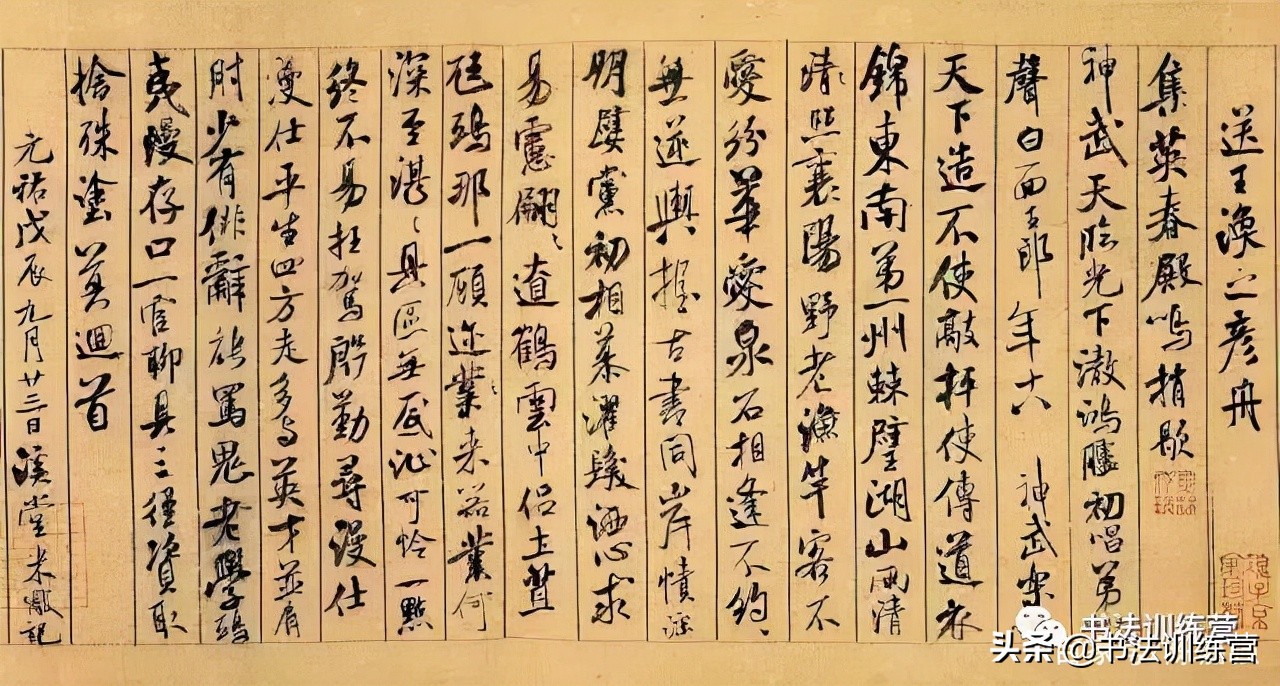 送王渙之彥舟
集英春殿鳴捎歇
神武天臨光下澈鴻臚初唱第
聲白面王郎年十八 神武樂
天下造不使敲枰使傳道衣
錦東南第一州棘璧湖山兩清
照襄陽野老漁竿客不
愛紛華愛泉石相逢不約〻
無逆輿握古書同岸幘淫
朋嬖黨初相慕濯髮灑心求
易慮翩〻遼鶴雲中侶土苴
尫鴟那一顧邇來器業何
深至湛〻具區無底沚可怜一點
終不易枉駕殷勤尋漫仕
漫仕平生四方走多与英才並肩
肘少有俳辭能罵鬼老學鴟
夷漫存口一官聊具三徑資取
捨殊塗莫迴首
元祐戊辰九月廿三日溪堂米黻記
书法训练营
头条@书法训练营